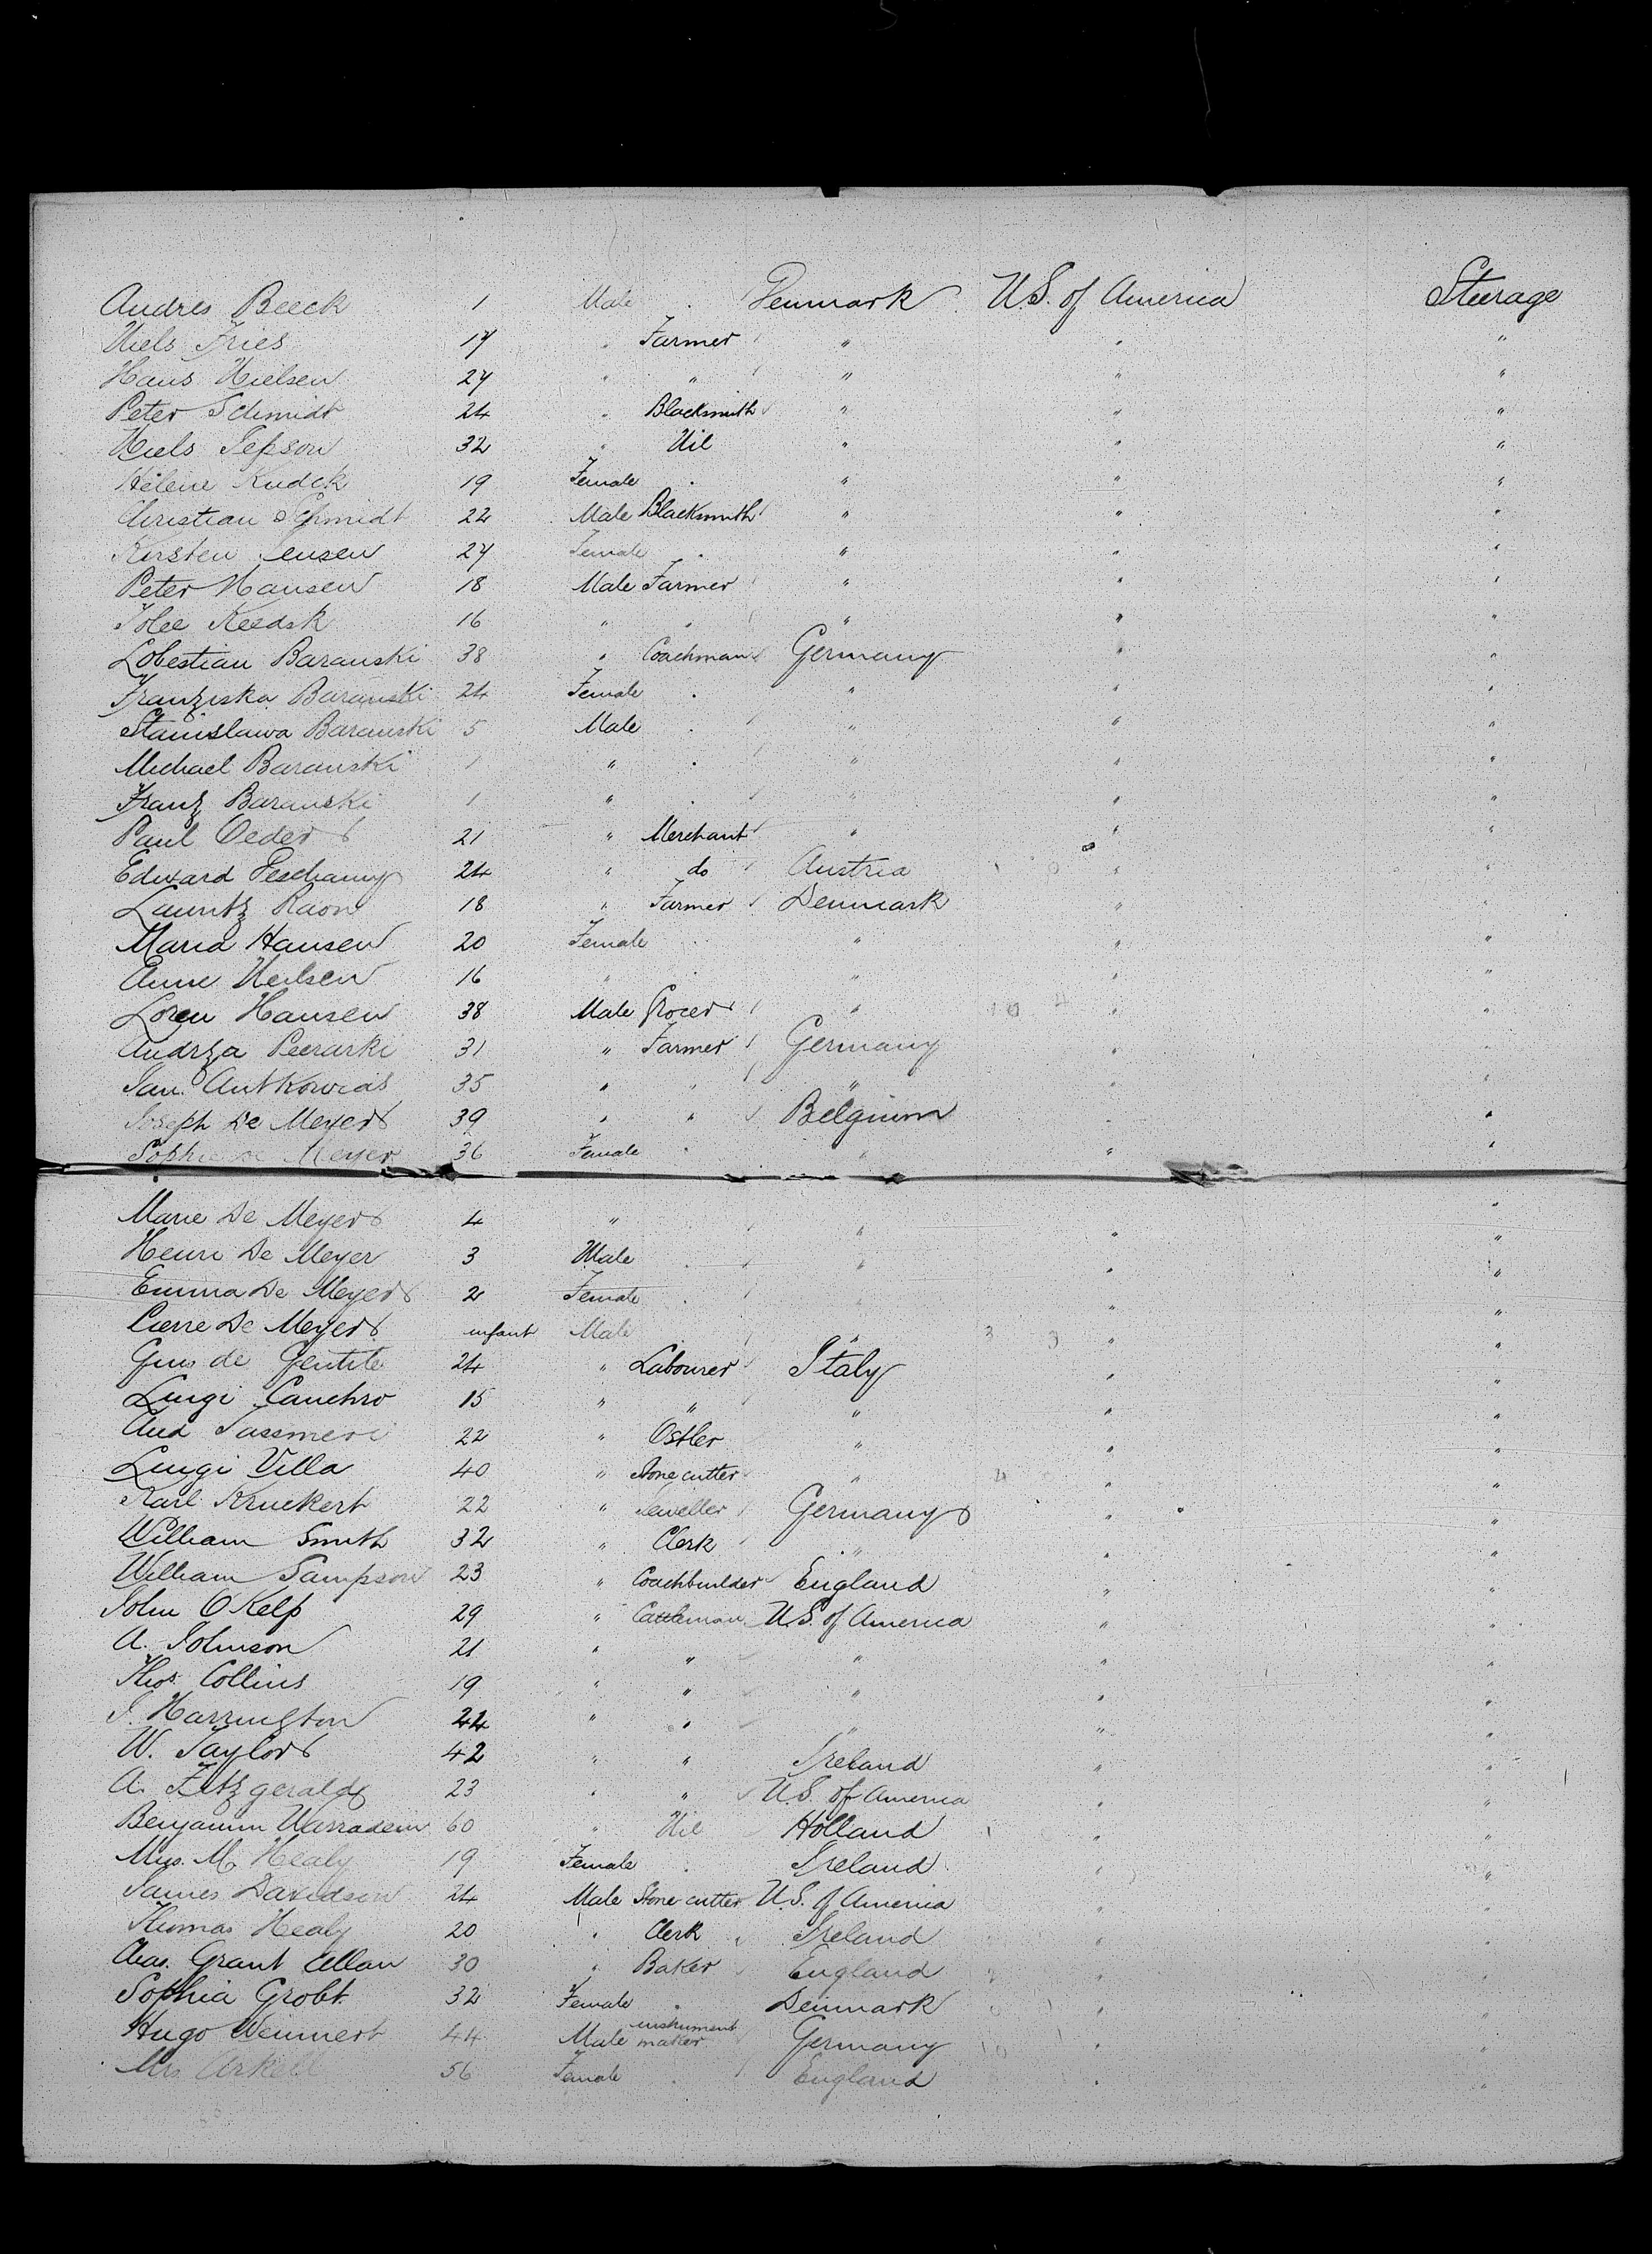 Andres Beeck 1 Male Denmark U.S. of America Steerage
Niels Fries 17 " Farmer " " "
Hans Nielsen 27 " " " " "
Peter Schmidt 24 " Blacksmith " " "
Niels Jepson 32 " Nil " " "
Helene Kudck 19 Female " " "
Christian Schmidt 22 Male Blacksmith " " "
Kirsten Jensen 27 Female " " "
Peter Hansen 18 Male Farmer " " "
Keedsk 16 " " " " "
Lobestian Baranski 38 " Coachman Germany " "
Franziska Baranski 24 Female " " "
Stanislawa Baranski 5 Male " " "
Michael Baranski 1 " " " "
Franz Baranski 1 " " "
Paul Oeder 21 " Merchant " " "
Edward Peschany 24 " do Austria " "
Lauritz Raon 18 " Farmer Denmark " "
Maria Hansen 20 Female " " "
Anne Neilsen 16 " " " "
Loren Hansen 38 Male Grocer " " "
Andrza Peerarki 31 " Farmer Germany " "
Jan Antkowias 35 " " " " "
Joseph De Meyer 39 " " Belgium " "
Sophie De Meyer 36 Female " " "
Marie De Meyer 4 " " " "
Henri De Meyer 3 Male " " "
Emma De Meyer 2 Female " " "
Pierre De Meyer infant Male " " "
Gius de Gentile 24 " Labourer Italy " "
Luigi Canchro 15 " " " " "
And Tassmeri 22 " Ostler " " "
Luigi Villa 40 " Stone cutter " " "
Karl Kruckert 22 " Jeweller Germany " "
William Smith 32 " Clerk " " "
William Sampson 23 " Coachbuilder England " "
John O Kelp 29 " Cattleman U.S. of America " "
A. Johnson 21 " " " " "
Thos. Collins 19 " " " " "
J. Harrington 24 " " " " "
W. Taylor 42 " " Ireland " "
A. Fitzgerald 23 " " U.S. of America " "
Benjamin Warradein 60 " Nil Holland " "
Mrs. M. Healy 19 Female Ireland " "
James Davidson 24 Male Stone cutter U.S. of America " "
Thomas Healy 20 " Clerk Ireland " "
Chas. Grant Allan 30 " Baker England " "
Sophia Grobt 32 Female Denmark " "
Hugo Weinnert 44 Male instrument maker Germany " "
Mrs Arkell 56 Female England " "